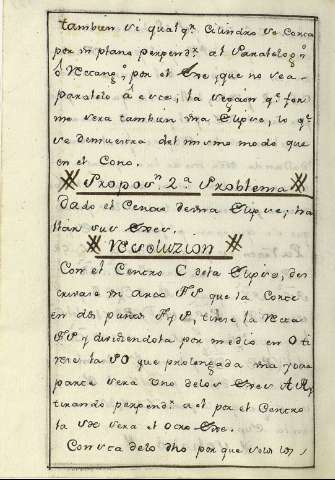 tambien si qualq.r Cilindro se Corta
por un plano perpend.r al Paralelog.o
ô Rectang.o, por el Exe, que no sea
paralelo â este, la seccion q.e for
me sera tambien una Elipse, lo q.e
se demuestra del mismo modo que
en el Cono.
Propos.n 2.a Problema
Dado el Centro de una Elipse, ha
llar sus Exes.
Resoluzion
Con el Centro C de la Elipse, des
crivase un Arco FS que la Corte
en dos puntos F y S, tirese la Recta
FS y dividiendola por medio en O ti
rese la SO que prolongada una y otra
parte sera Uno de los Exes AR, y
tirando perpend.r a el por el Centro
la sera el otro Exe.
Consta de lo dho por que